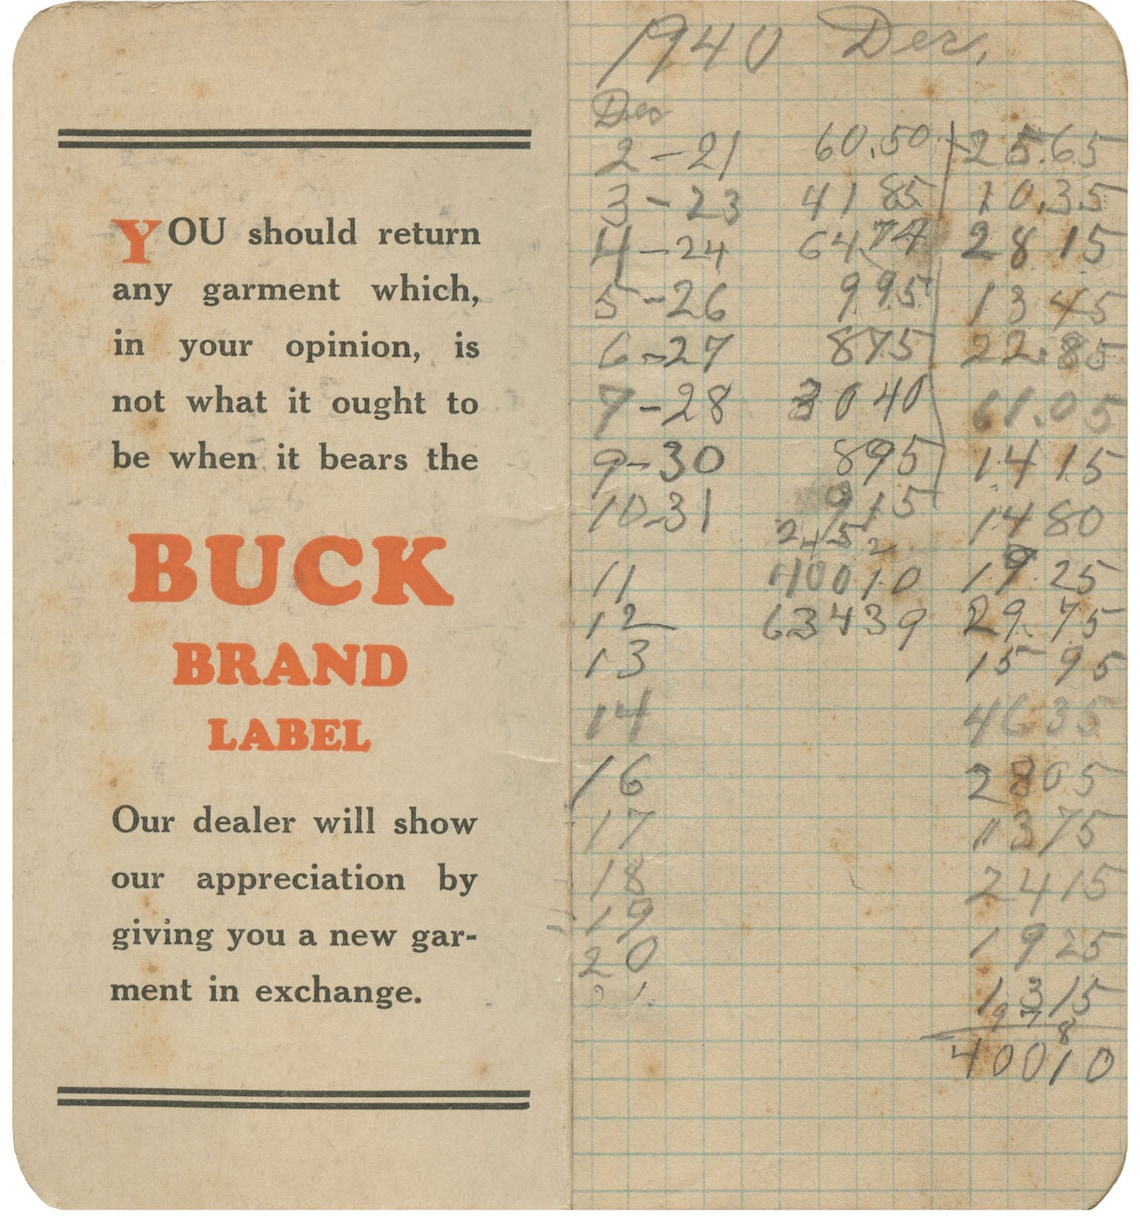 YOU should return
any garment which,
in your opinion, is
not what it ought to
be when it bears the
BUCK
BRAND
LABEL
Our dealer will show
our appreciation by
giving you a new gar-
ment in exchange.
1940 Dec.
Dec
2-21 60.50 25.65
3-23 41 85 10.35
4-24 64.74 28 15
5-26 9 95 13 45
6-27 8 75 22.85
7-28 30 40 61.05
9-30 8 95 14 15
10-31 9 15 14 80
2 4 5 2
11 400 10 19 25
12 634 39 29.75
13 15 95
14 46 35
16 28 05
17 13 75
18 24 15
19 19 25
20 13 15
21
9 7 8
400 10